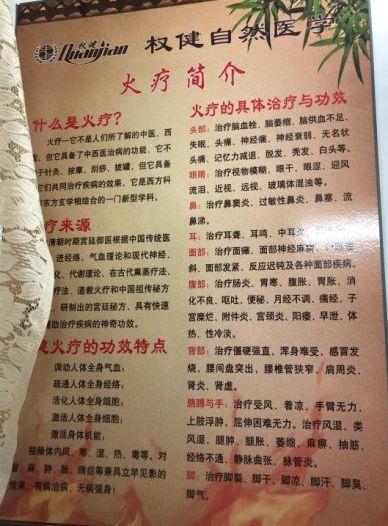 权健
Quanjian
权健自然医学
火疗简介
什么是火疗?
火疗一它不是人们所了解的中医、西
医，但它具备了中西医治病的功能，它不
于针灸、按摩、刮痧、拔罐，但它具备
它们共同治疗疾病的效果，它是西方科
东方玄学相结合的一门新型学科。
疗来源
清朝时期宫廷御医根据中国传统医
进经络，气血理论和现代神经、
化、代谢理论，在古代熏蒸疗法、
疗法、道教火疗和中国祖传秘方
研制出的宫廷秘方，具有快速
辅助治疗疾病的神奇功效。
火疗的功效特点
调动人体全身气血;
疏通人体全身经络;
活化人体全身细胞;
激活人体全身细胞;
激活身体机能;
祛除体内风、寒、湿、热、毒等。对
麻、肿、胀、痛症等兼具立竿见影的
效果，有病治病、无病强身!
火疗的具体治疗与功效
头部: 治疗脑血栓、脑萎缩、脑供血不足、
失眠、头痛、神经痛、神经衰弱、无名状
头痛、记忆力减退、脱发、秃发、白头等。
眼睛: 治疗视物模糊、眼干、眼涩、迎风
流泪、近视、远视、玻璃体混浊等。
鼻: 治疗鼻窦炎、过敏性鼻炎、鼻塞、流
鼻涕。
耳: 治疗耳聋、耳鸣、中耳炎
面部: 治疗面瘫、面部神经麻
斜、面部发紧、反应迟钝及各种面部疾病。
腹部: 治疗肠炎、胃寒、腹胀、胃胀、消
化不良、呕吐、便秘、月经不调、痛经、子
宫糜烂、附件炎、宫颈炎、阳痿、早泄、体
热、性冷淡。
背部: 治疗僵硬强直，浑身难受，感冒发
烧，腰间盘突出、腰椎管狭窄、肩周炎、
肾炎、肾虚。
胳膊与手: 治疗受风、着凉、手臂无力、
上肢浮肿、屈伸困难无力。治疗风湿、类
风湿、腿肿、腿胀、萎缩、麻痹、抽筋、
经络不通、静脉曲张、脉管炎。
脚: 治疗脚裂、脚干、脚凉、脚汗、脚臭、
脚气。